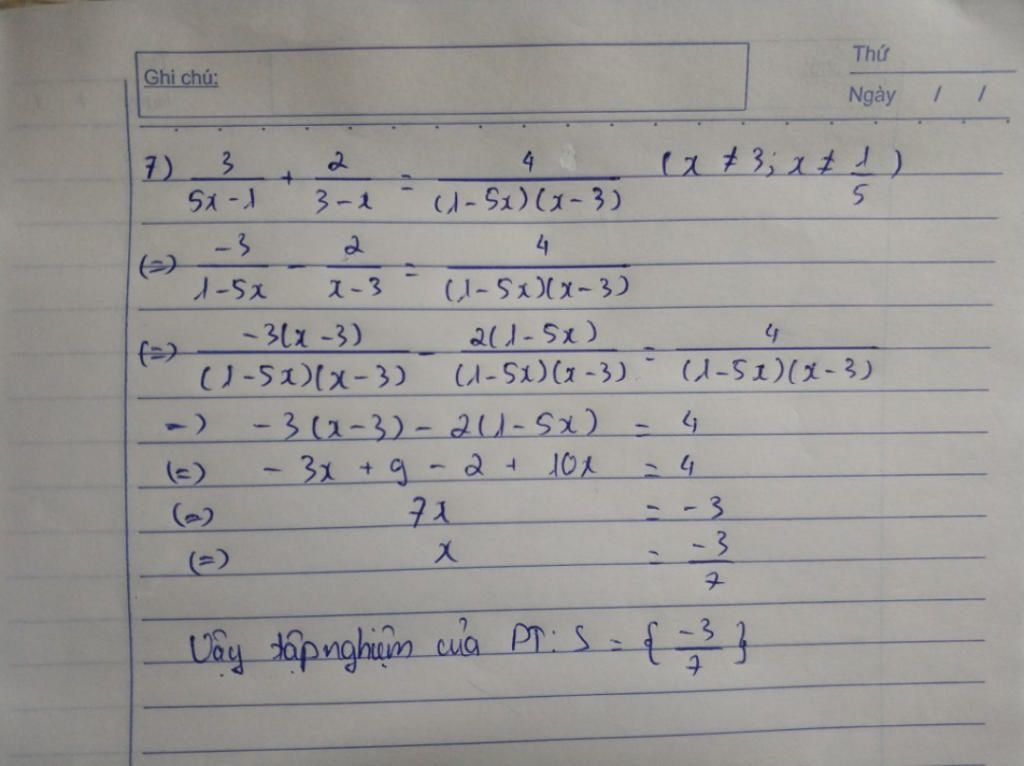 Thứ
Ghi chú:
Ngày / /
7) 3/(5x-1) + 2/(3-x) = 4/((1-5x)(x-3)) (x ≠ 3; x ≠ 1/5)
(=) -3/(1-5x) - 2/(x-3) = 4/((1-5x)(x-3))
(=) -3(x-3)/((1-5x)(x-3)) - 2(1-5x)/((1-5x)(x-3)) = 4/((1-5x)(x-3))
=) -3(x-3) - 2(1-5x) = 4
(=) - 3x + 9 - 2 + 10x = 4
(=) 7x = -3
(=) x = -3/7
Vậy tập nghiệm của PT: S = {-3/7}